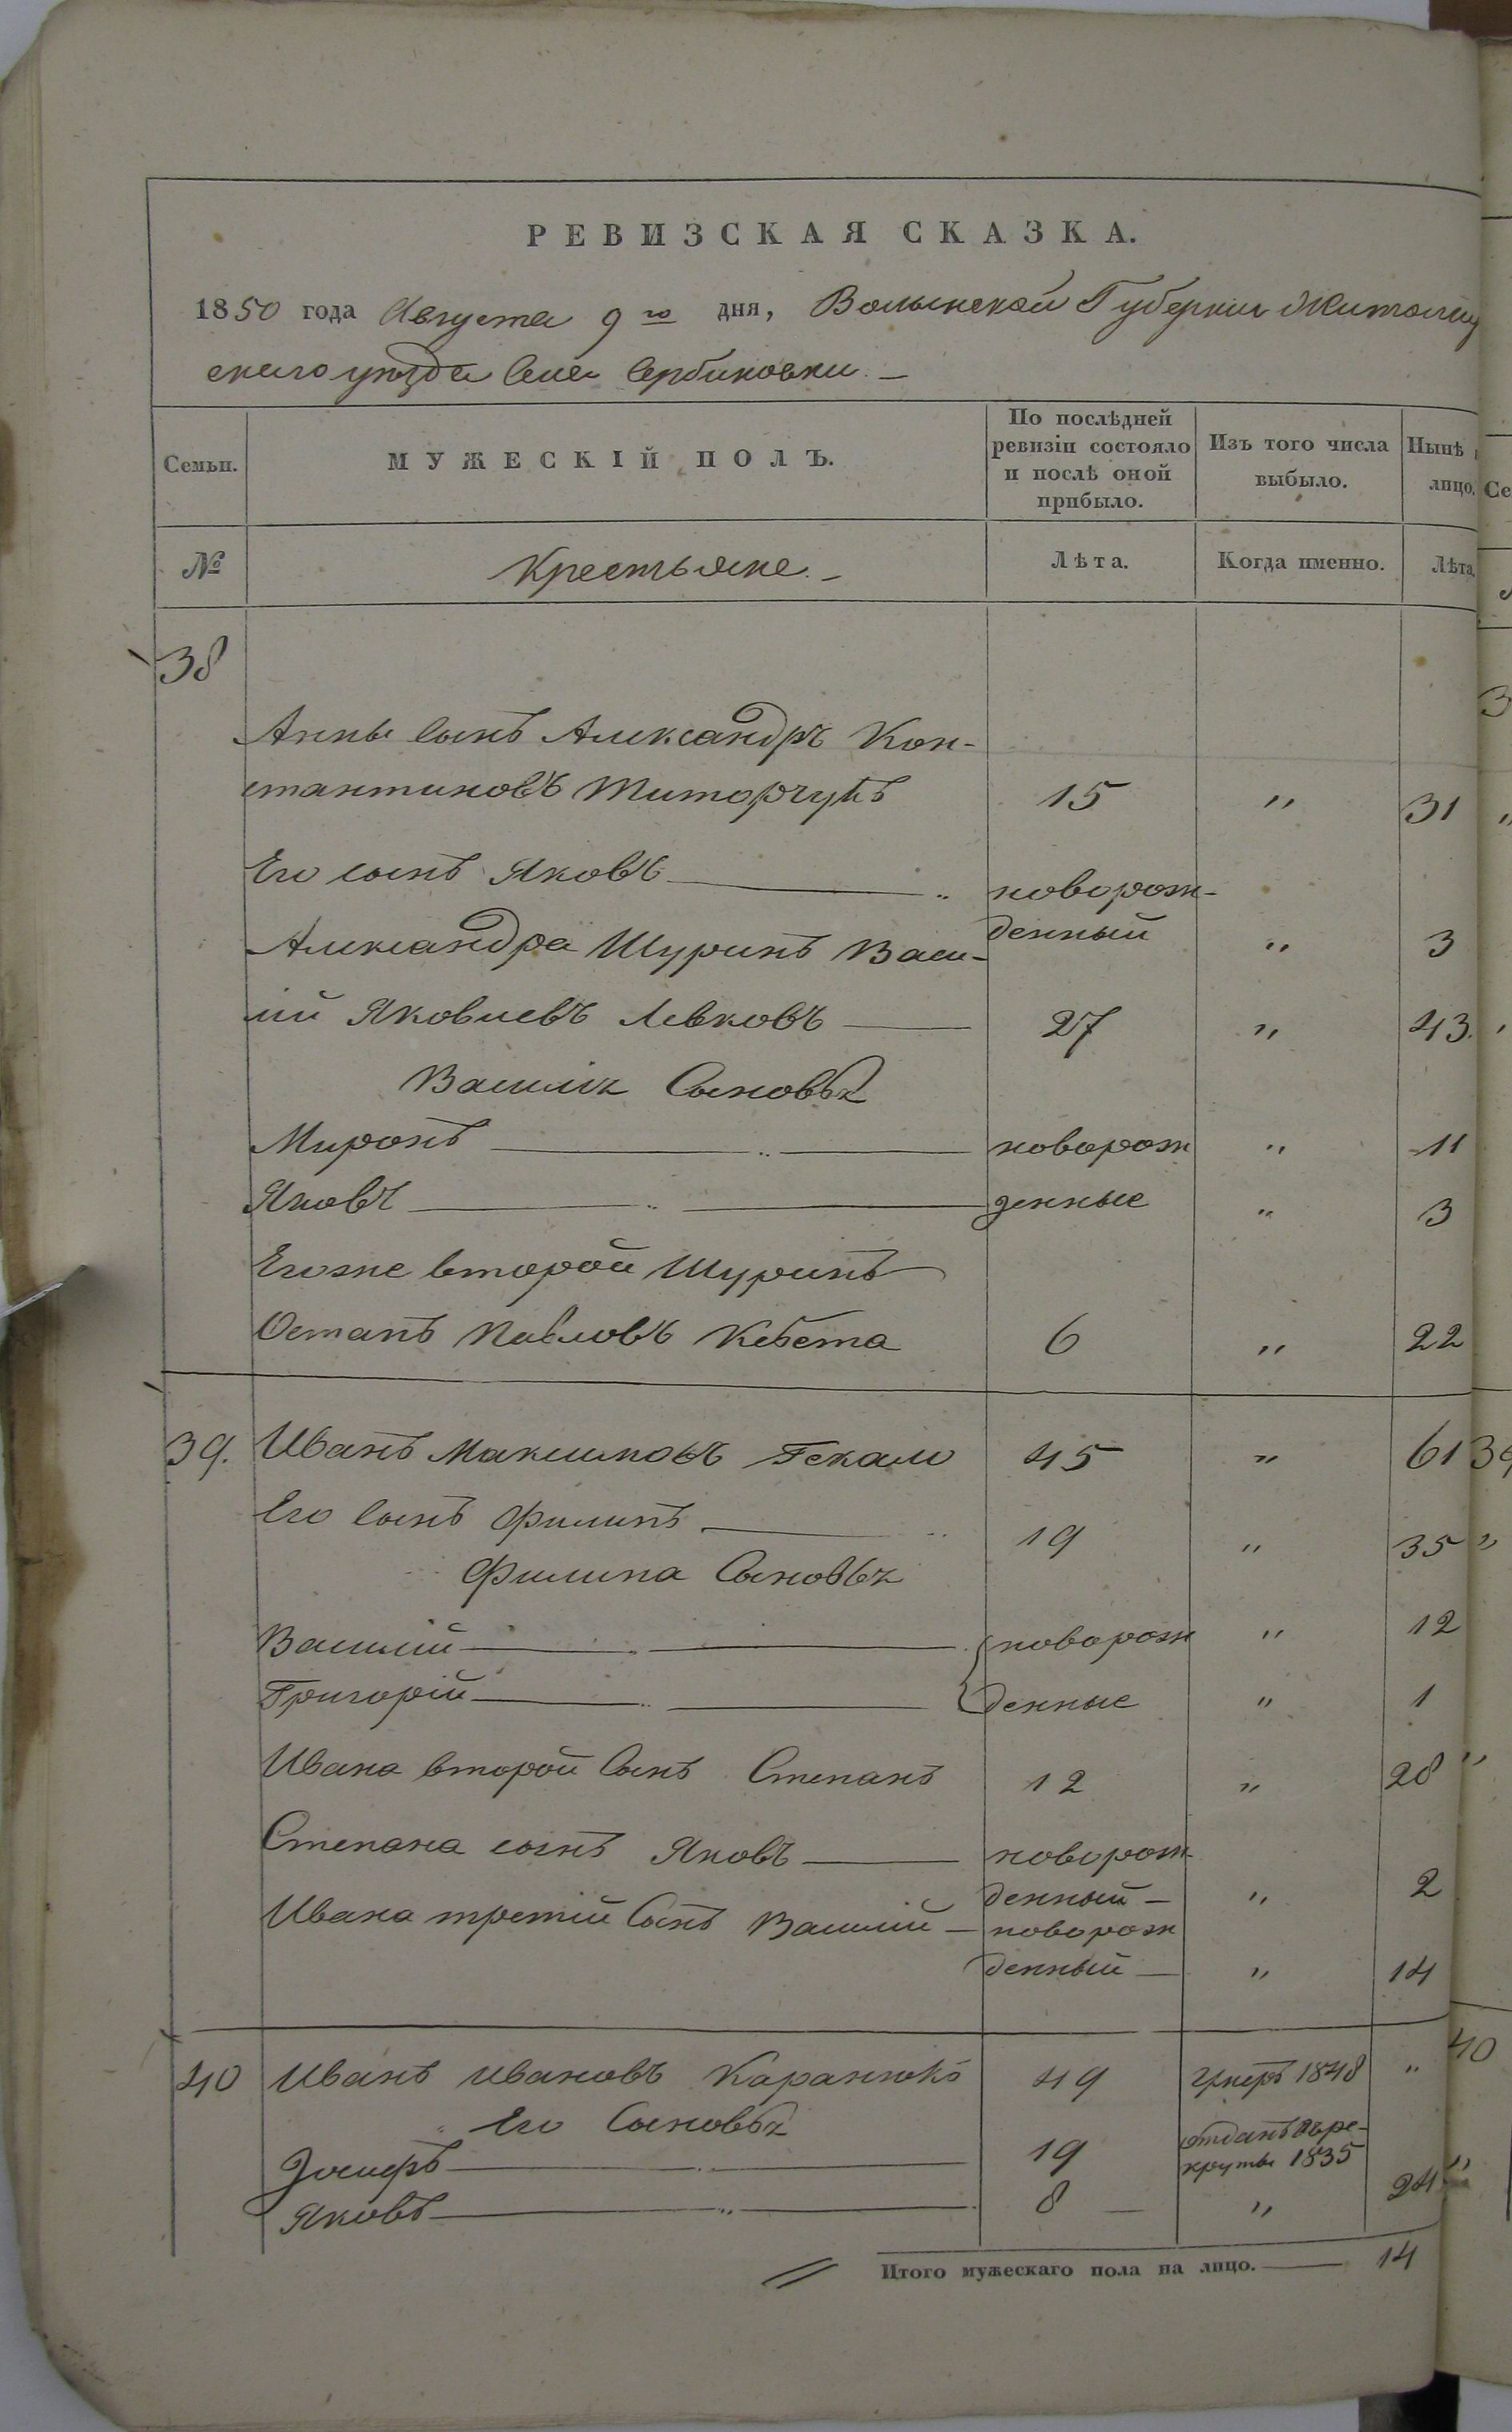 РЕВИЗСКАЯ СКАЗКА.
1850 года Августа 9го дня, Волынской Губерніи Житомир
скаго уѣзда Села Сербиновки. —
Семьи.
МУЖЕСКІЙ ПОЛЪ.
По послѣдней
ревизіи состояло
и послѣ оной
прибыло.
Изъ того числа
выбыло.
Нынѣ
лицо.
№
Крестьяне. —
Лѣта.
Когда именно.
Лѣта.
38
Анны сынъ Александръ Кон-
стантиновъ Титорчукъ 15 " 31
Его сынъ Яковъ — новорож-
денный " 3
Александра Шуринъ Васи-
лій Яковлевъ Левковъ — 27 " 43.
Василія Сыновья
Миронъ — новорож " 11
Яковъ — денные " 3
Егоже второй Шуринъ
Остапъ Павловъ Кебета 6 " 22
39. Иванъ Максимовъ Гекало 45 " 61
Его сынъ Филипъ — 19 " 35
Филипа Сыновья
Василій — новорож " 12
Григорій — денные " 1
Ивана второй Сынъ Степанъ 12 " 28
Степана сынъ Яковъ — новорож
денный — " 2
Ивана третій Сынъ Василій — новорож
денный — " 14
40 Иванъ Ивановъ 49 умеръ 1848 "
Его Сыновья
Іосифъ — 19 отданъ въ ре-
круты 1835
Яковъ — 8 — " 24
Итого мужескаго пола на лицо. — 14